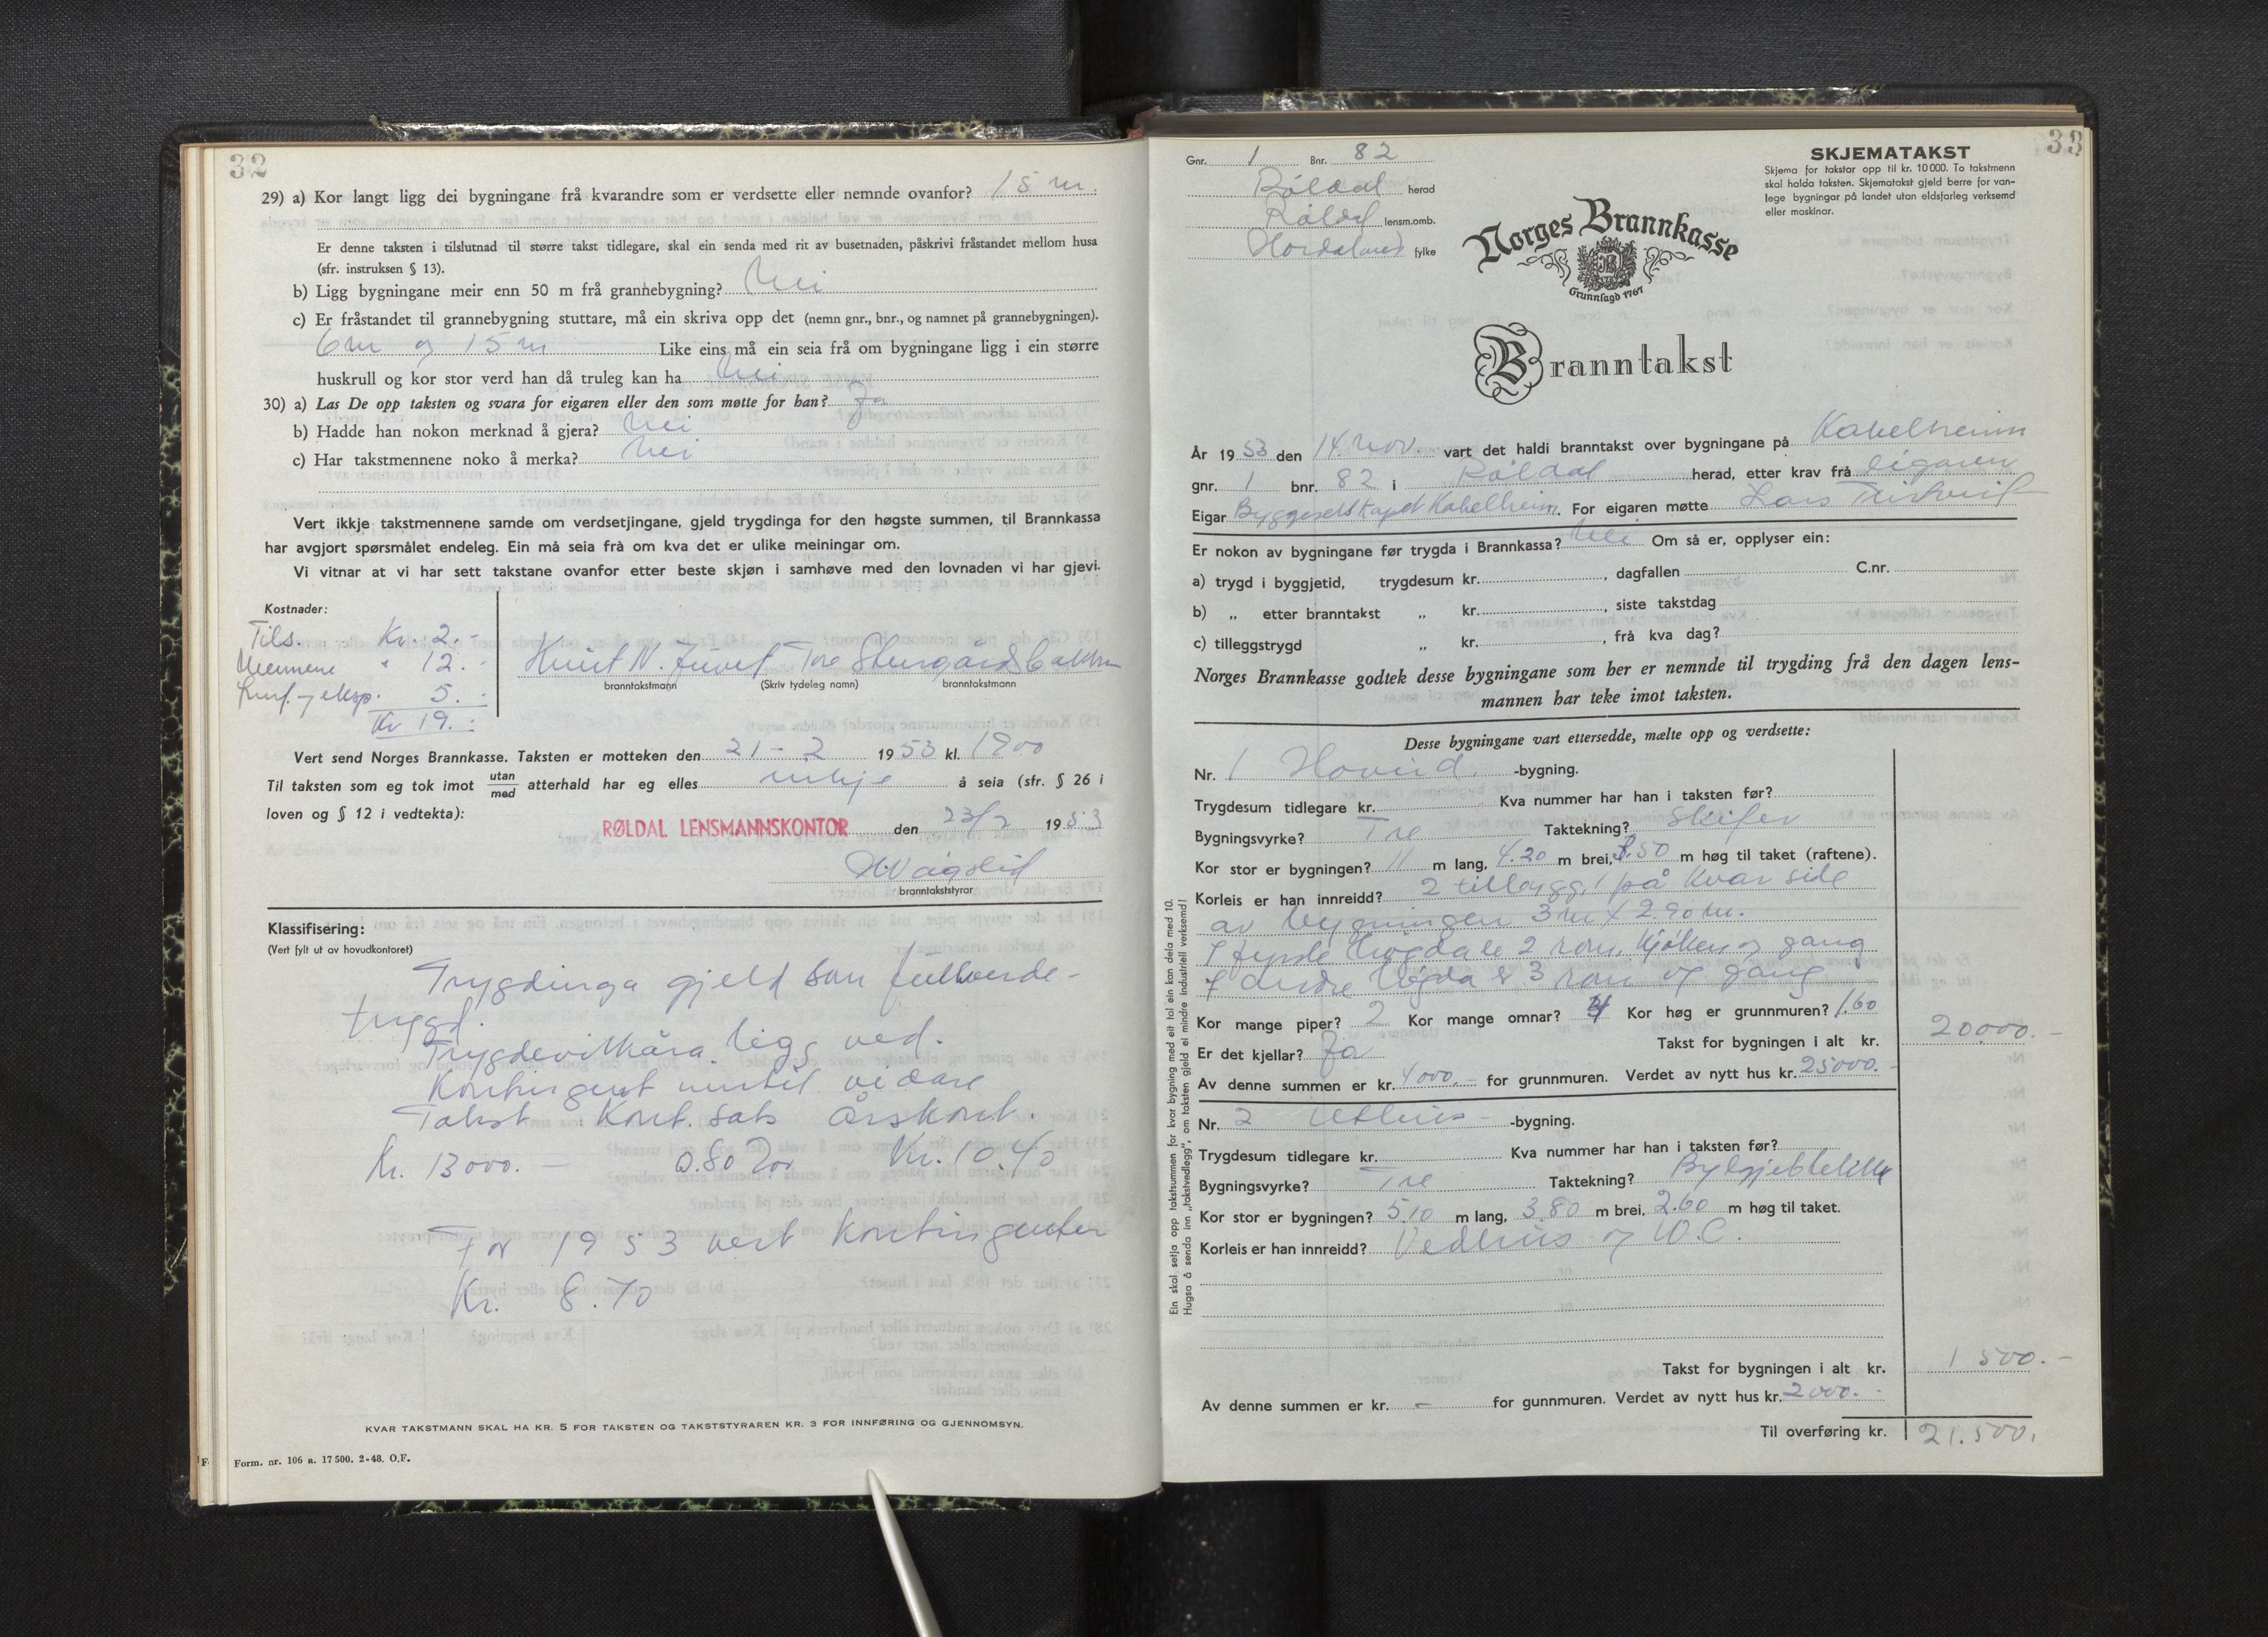 32
29) a) Kor langt ligg dei bygningane frå kvarandre som er verdsette eller nemnde ovanfor? 15 m.
Er denne taksten i tilslutnad til større takst tidlegare, skal ein senda med rit av busetnaden, påskrivi fråstandet mellom husa
(sfr. instruksen § 13).
b) Ligg bygningane meir enn 50 m frå grannebygning? Nei
c) Er fråstandet til grannebygning stuttare, må ein skriva opp det (nemn gnr., bnr., og namnet på grannebygningen).
6 m og 15 m Like eins må ein seia frå om bygningane ligg i ein større
huskrull og kor stor verd han då truleg kan ha Nei
30) a) Las De opp taksten og svara for eigaren eller den som møtte for han? Ja
b) Hadde han nokon merknad å gjera? Nei
c) Har takstmennene noko å merka? Nei
Vert ikkje takstmennene samde om verdsetjingane, gjeld trygdinga for den høgste summen, til Brannkassa
har avgjort spørsmålet endeleg. Ein må seia frå om kva det er ulike meiningar om.
Vi vitnar at vi har sett takstane ovanfor etter beste skjøn i samhøve med den lovnaden vi har gjevi.
Kostnader:
Tils. Kr. 2.-
Mennene " 12.-
5.-
Kr 19.-
Knut N. Juvet Tore
branntakstmann (Skriv tydeleg namn) branntakstmann
Vert send Norges Brannkasse. Taksten er motteken den 21-2 1953 kl. 1900
Til taksten som eg tok imot utan/med atterhald har eg elles inkje å seia (sfr. § 26 i
loven og § 12 i vedtekta):
RØLDAL LENSMANNSKONTOR den 23/2 1953
H. Vågslid
branntakststyrar
Klassifisering:
(Vert fylt ut av hovudkontoret)
Trygdinga gjeld som fullverde-
trygd.
Trygdevilkåra legg ved.
Kontingent inntil vidare
Takst Kont. sats Årskont.
Kr. 13000.- 0.80 Kr. 10.40
For 1953 vert kontingenten
Kr. 8.70
KVAR TAKSTMANN SKAL HA KR. 5 FOR TAKSTEN OG TAKSTSTYRAREN KR. 3 FOR INNFØRING OG GJENNOMSYN.
Form. nr. 106 a. 17500. 2-48. O.F.
33
Gnr. 1 Bnr. 82
Røldal herad
Røldal lensm.omb.
Hordaland fylke
SKJEMATAKST
Skjema for takstar opp til kr. 10000. To takstmenn
skal halda taksten. Skjematakst gjeld berre for van-
lege bygningar på landet utan eldsfarleg verksemd
eller maskinar.
Norges Brannkasse
Grunnlagd 1767
Branntakst
År 1953 den 14. nov. vart det haldi branntakst over bygningane på Kabelheim
gnr. 1 bnr. 82 i Røldal herad, etter krav frå eigaren
Eigar Byggeselskapet Kabelheim. For eigaren møtte Lars
Er nokon av bygningane før trygda i Brannkassa? Nei Om så er, opplyser ein:
a) trygd i byggjetid, trygdesum kr. , dagfallen C.nr.
b) „ etter branntakst „ kr. , siste takstdag
c) tilleggstrygd „ kr. , frå kva dag?
Norges Brannkasse godtek desse bygningane som her er nemnde til trygding frå den dagen lens-
mannen har teke imot taksten.
Desse bygningane vart ettersedde, mælte opp og verdsette:
Nr. 1 Hovud -bygning.
Trygdesum tidlegare kr. Kva nummer har han i taksten før?
Bygningsvyrke? Tre Taktekning? Skifer
Kor stor er bygningen? 11 m lang, 4.20 m brei, 3.50 m høg til taket (raftene).
Korleis er han innreidd? 2 tillegg, 1 på kvar side
av bygningen 3 m x 2.90 m.
I fyrste høgda er 2 rom, kjøken og gang
I andre høgda er 3 rom og gang
Kor mange piper? 2 Kor mange omnar? 4 Kor høg er grunnmuren? 1.60
Er det kjellar? Ja Takst for bygningen i alt kr. 20000.-
Av denne summen er kr. 4000.- for grunnmuren. Verdet av nytt hus kr. 25000.-
Nr. 2 Uthus -bygning.
Trygdesum tidlegare kr. Kva nummer har han i taksten før?
Bygningsvyrke? Tre Taktekning?
Kor stor er bygningen? 5.10 m lang, 3.80 m brei, 2.60 m høg til taket.
Korleis er han innreidd? Vedhus og W.C.
Takst for bygningen i alt kr. 1500.-
Av denne summen er kr. - for gunnmuren. Verdet av nytt hus kr. 2000.-
Til overføring kr. 21.500.
Ein skal setja opp takstsummen for kvar bygning med eit tal ein kan dela med 10.
Hugsa å senda inn „takstvedlegg", om taksten gjeld ei mindre industriell verksemd!